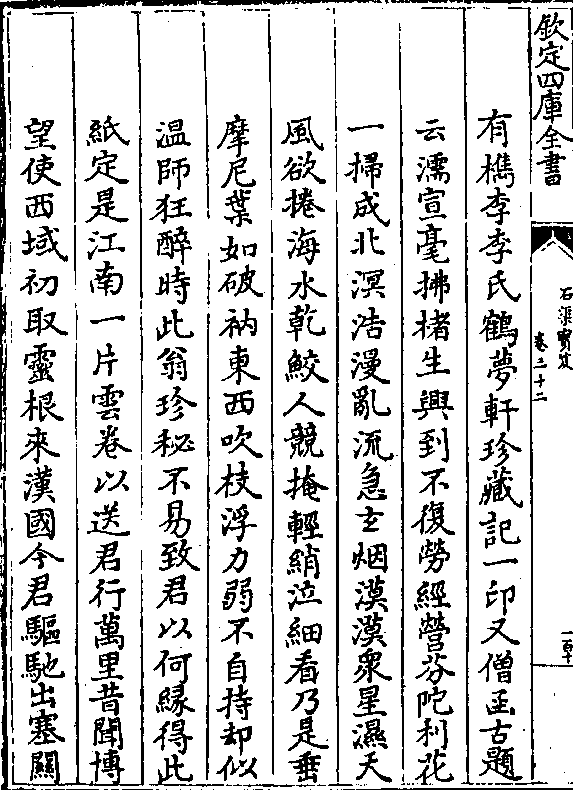 欽定四庫全書
石渠寶笈
卷三十二
一百十
有檇李李氏鶴夢軒珍藏記一印又僧函古題
云濡宣毫拂楮生興到不復勞經營芬陀利花
一掃成北溟浩漫亂流急玄烟漠漠衆星濕天
風欲捲海水乾鮫人競掩輕綃泣細看乃是垂
摩尼葉如破衲東西吹枝浮力弱不自持却似
温師狂醉時此翁珍秘不易致君以何緣得此
紙定是江南一片雲卷以送君行萬里昔聞博
望使西域初取靈根来漢國今君驅馳出塞關